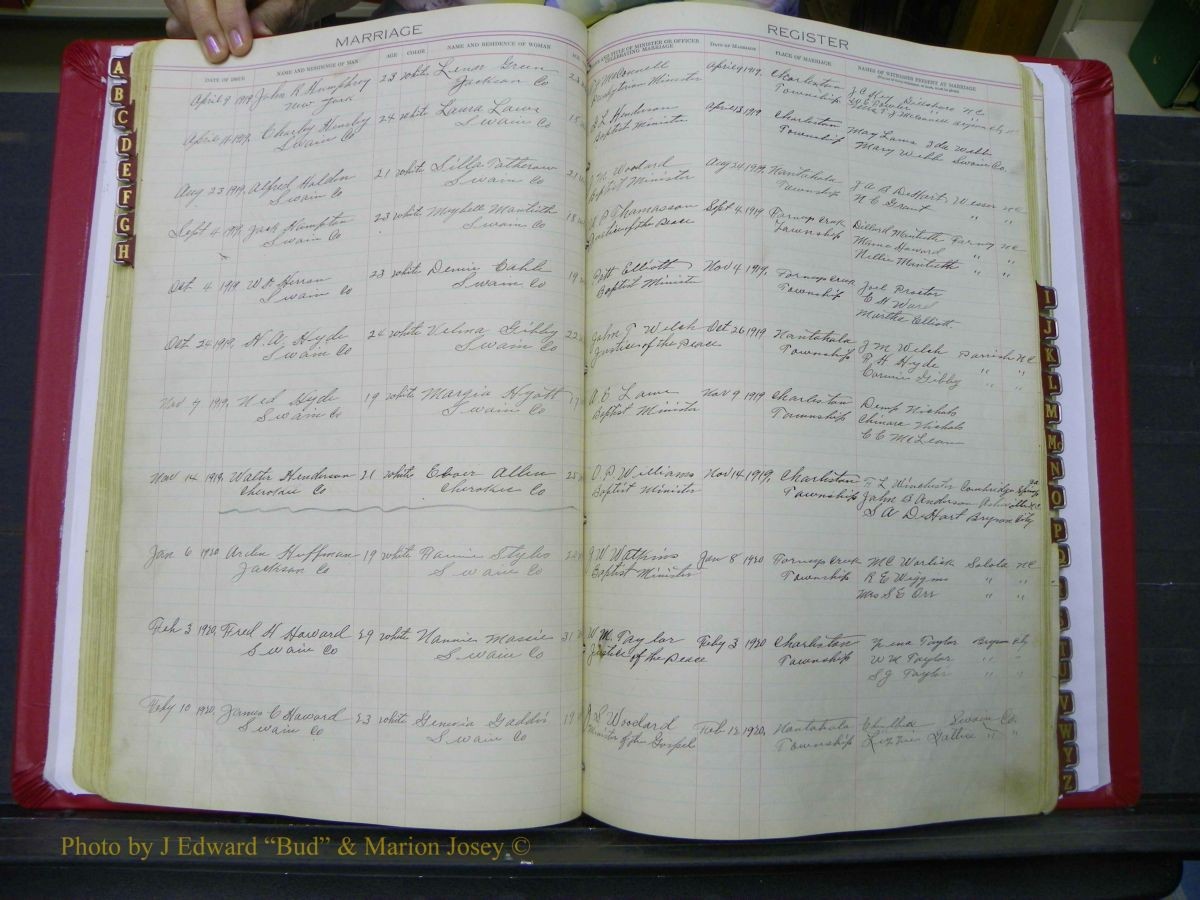 MARRIAGE
REGISTER
DATE OF ISSUE NAME AND RESIDENCE OF MAN AGE COLOR NAME AND RESIDENCE OF WOMAN AGE
NAME AND TITLE OF MINISTER OR OFFICER CELEBRATING MARRIAGE DATE OF MARRIAGE PLACE OF MARRIAGE NAMES OF WITNESSES PRESENT AT MARRIAGE
April 9 1919, John R Humphrey 23 white Lena Green
New York Jackson Co
McConnell April 9 1919, Charleston J C Key Dillsboro NC
Presbyterian Minister Township
April 1919, Charley Hensley 24 white Laura Laws 18
Swain Co Swain Co
Henderson April 1919 Charleston May Laws Ida Webb
Baptist Minister Township Mary Webb Swain Co.
Aug 23 1919, Alfred Holden 21 white 21
Swain Co Swain Co
Woodard Aug 24 1919, Nantahala J A B DeHart Wesser NC
Baptist Minister Township N C Grant " "
Sept 4 1919, Jack Hampton 23 white Maybelle Manteith 18
Swain Co Swain Co
Thomasson Sept 4, 1919 Forneys Creek Dillard Manteith Forney NC
Justice of the Peace Township Mamie Howard " "
Nellie Manteith " "
Oct 4 1919 W H Herron 23 white Cable 19
Swain Co Swain Co
Pett Elliott Nov 4 1919, Forneys Creek Joel Proctor
Baptist Minister Township C H Ward
Martha Elliott
Oct 24 1919, H. A. Hyde 24 white Velma Gibby 22
Swain Co Swain Co
John T Welch Oct 26 1919 Nantahala J M Welch Parrish NC
Justice of the Peace Township R H Hyde " "
Gibby " "
Nov 7 1919, Ned Hyde 19 white Margia Hyatt 17
Swain Co Swain Co
Nov 9 1919 Charleston Demp Nichols
Baptist Minister Township Nichols
C E McLean
Nov 14 1919, Walter Henderson 21 white Allen 25
Cherokee Co Cherokee Co
Williams Nov 14 1919, Charleston
Baptist Minister Township John B Anderson Asheville NC
S A DeHart Bryson City
Jan 6 1920 Arden Huffman 19 white Styles
Jackson Co Swain Co
W Watkins Jan 8 1920 Forneys Creek MC Worlick Solola NC
Baptist Minister Township R E Wiggins " "
Mrs S E Orr " "
Feb 3 1920, Fred H Howard 29 white Nannie Massie 31
Swain Co Swain Co
W M Taylor Feby 3 1920 Charleston Taylor Bryson City
Justice of the Peace Township W M Taylor " "
S J Taylor " "
Feby 10 1920, James C Howard 23 white Geneva Gaddis 19
Swain Co Swain Co
Woodard Feb 12 1920, Nantahala Swain Co.
Minister of the Gospel Township Lizzie " "
A
B
C
D
E
F
G
H
I
J
K
L
M
Mc
N
O
P
Q
R
S
T
U
V
W
Y
Z
Photo by J Edward “Bud” & Marion Josey ©